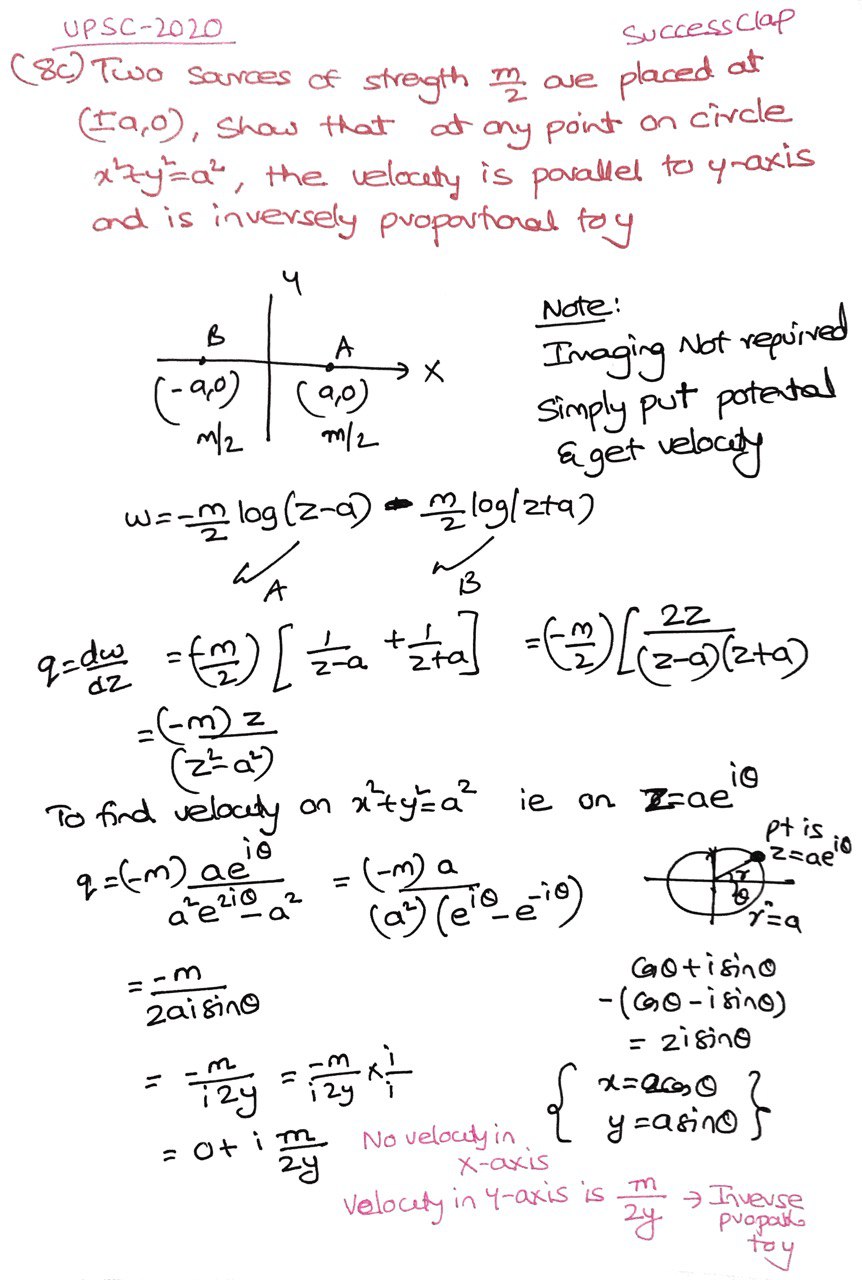 UPSC-2020
SuccessClap
(8c) Two sources of strength m/2 are placed at
(±a,0), show that at any point on circle
x²+y²=a², the velocity is parallel to y-axis
and is inversely proportional to y
y
B
A
x
(-a,0)
(a,0)
m/2
m/2
Note:
Imaging Not required
Simply put potential
& get velocity
w = -m/2 log(z-a) - m/2 log(z+a)
A
B
q = dw/dz = (-m/2) [ 1/(z-a) + 1/(z+a) ] = (-m/2) [ 2z/((z-a)(z+a))
= (-m) z/(z²-a²)
To find velocity on x²+y²=a² ie on z=ae^iθ
pt is
z=ae^iθ
r
θ
r=a
q = (-m) ae^iθ/(a²e^2iθ - a²) = (-m) a/((a²)(e^iθ - e^-iθ))
= -m/(2ai sinθ)
cosθ + i sinθ
-(cosθ - i sinθ)
= 2i sinθ
= -m/(i2y) = -m/(i2y) × i/i
{ x=acosθ
y=asinθ }
= 0 + i m/2y
No velocity in
x-axis
Velocity in y-axis is m/2y → Inverse
to y